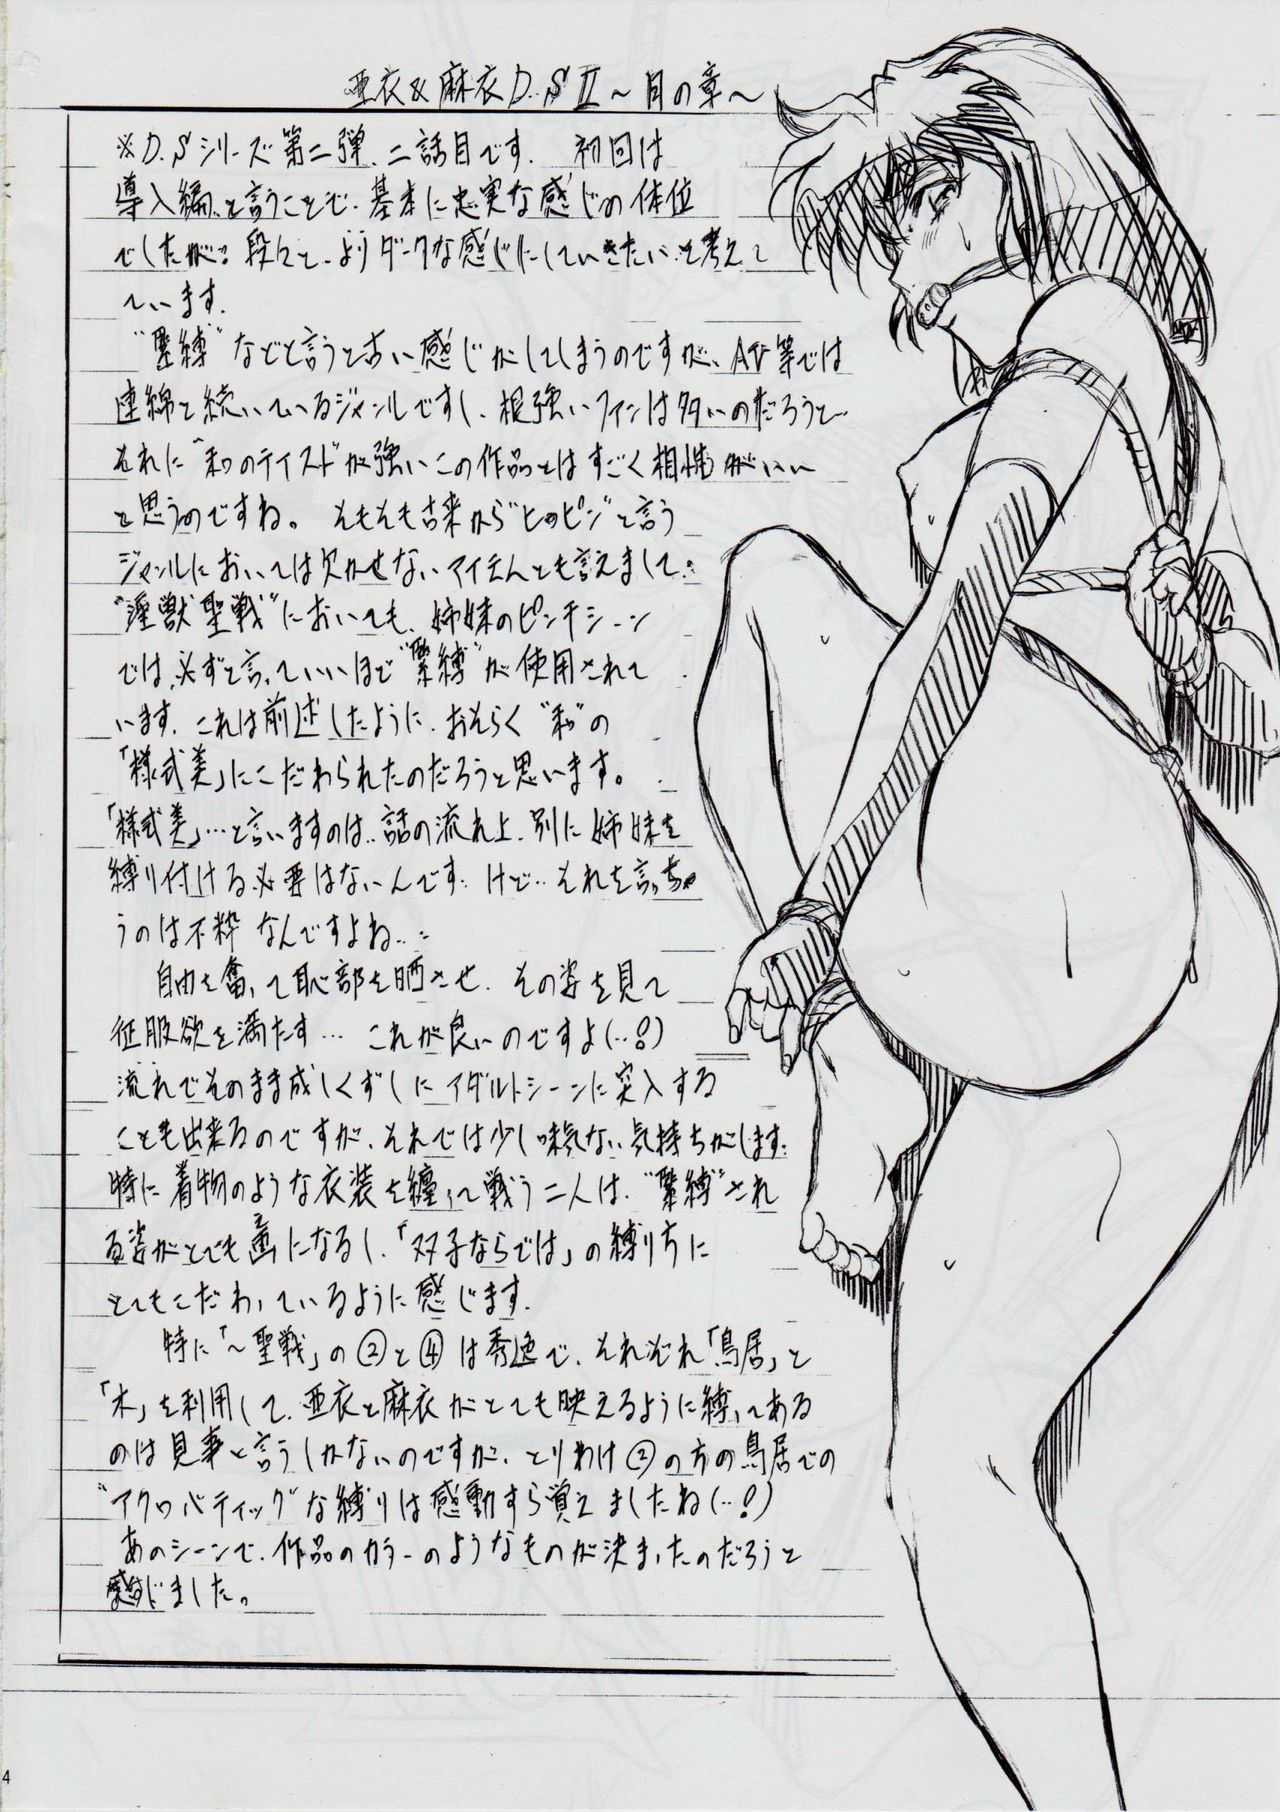 亜衣&麻衣D.SⅡ~月の章~
※D.Sシリーズ第二弾、二話目です。初回は
導入編と言うことで、基本に忠実な感じの体位
でしたが、段々と、よりダークな感じにしていきたいと考えて
います。
"緊縛"などと言うと古い感じがしてしまうのですが、AV等では
連綿と続いているジャンルですし、根強いファンは多いのだろうと…
それに"和"のテイストが強いこの作品とはすごく相性がいい
と思うのですね。そもそも古来から"ヒロピン"と言う
ジャンルにおいては欠かせないアイテムとも言えまして…
"淫獣聖戦"においても、姉妹のピンチシーン
では、必ずと言っていいほど"緊縛"が使用されて
います。これは前述したように、おそらく"和"の
「様式美」にこだわられたのだろうと思います。
「様式美」…と言いますのは、話の流れ上、別に姉妹を
縛り付ける必要はないんです…けど…それを言っちゃ
うのは不粋なんですよね…
自由を奪って恥部を晒させ、その姿を見て
征服欲を満たす…これが良いのですよ(…!)
流れでそのまま成しくずしにアダルトシーンに突入する
ことも出来るのですが、それでは少し味気ない気持ちがします…
特に着物のような衣装を纏って戦う二人は、"緊縛"され
る姿がとても画になるし、「双子ならでは」の縛り方に
とてもこだわっているように感じます。
特に「~聖戦」の②と④は秀逸で、それぞれ「鳥居」と
「木」を利用して、亜衣と麻衣がとても映えるように縛ってある
のは見事と言うしかないのですが、とりわけ②の方の鳥居での
"アクロバティック"な縛りは感動すら覚えましたね(…!)
あのシーンで、作品のカラーのようなものが決まったのだろうと
感じました。
4